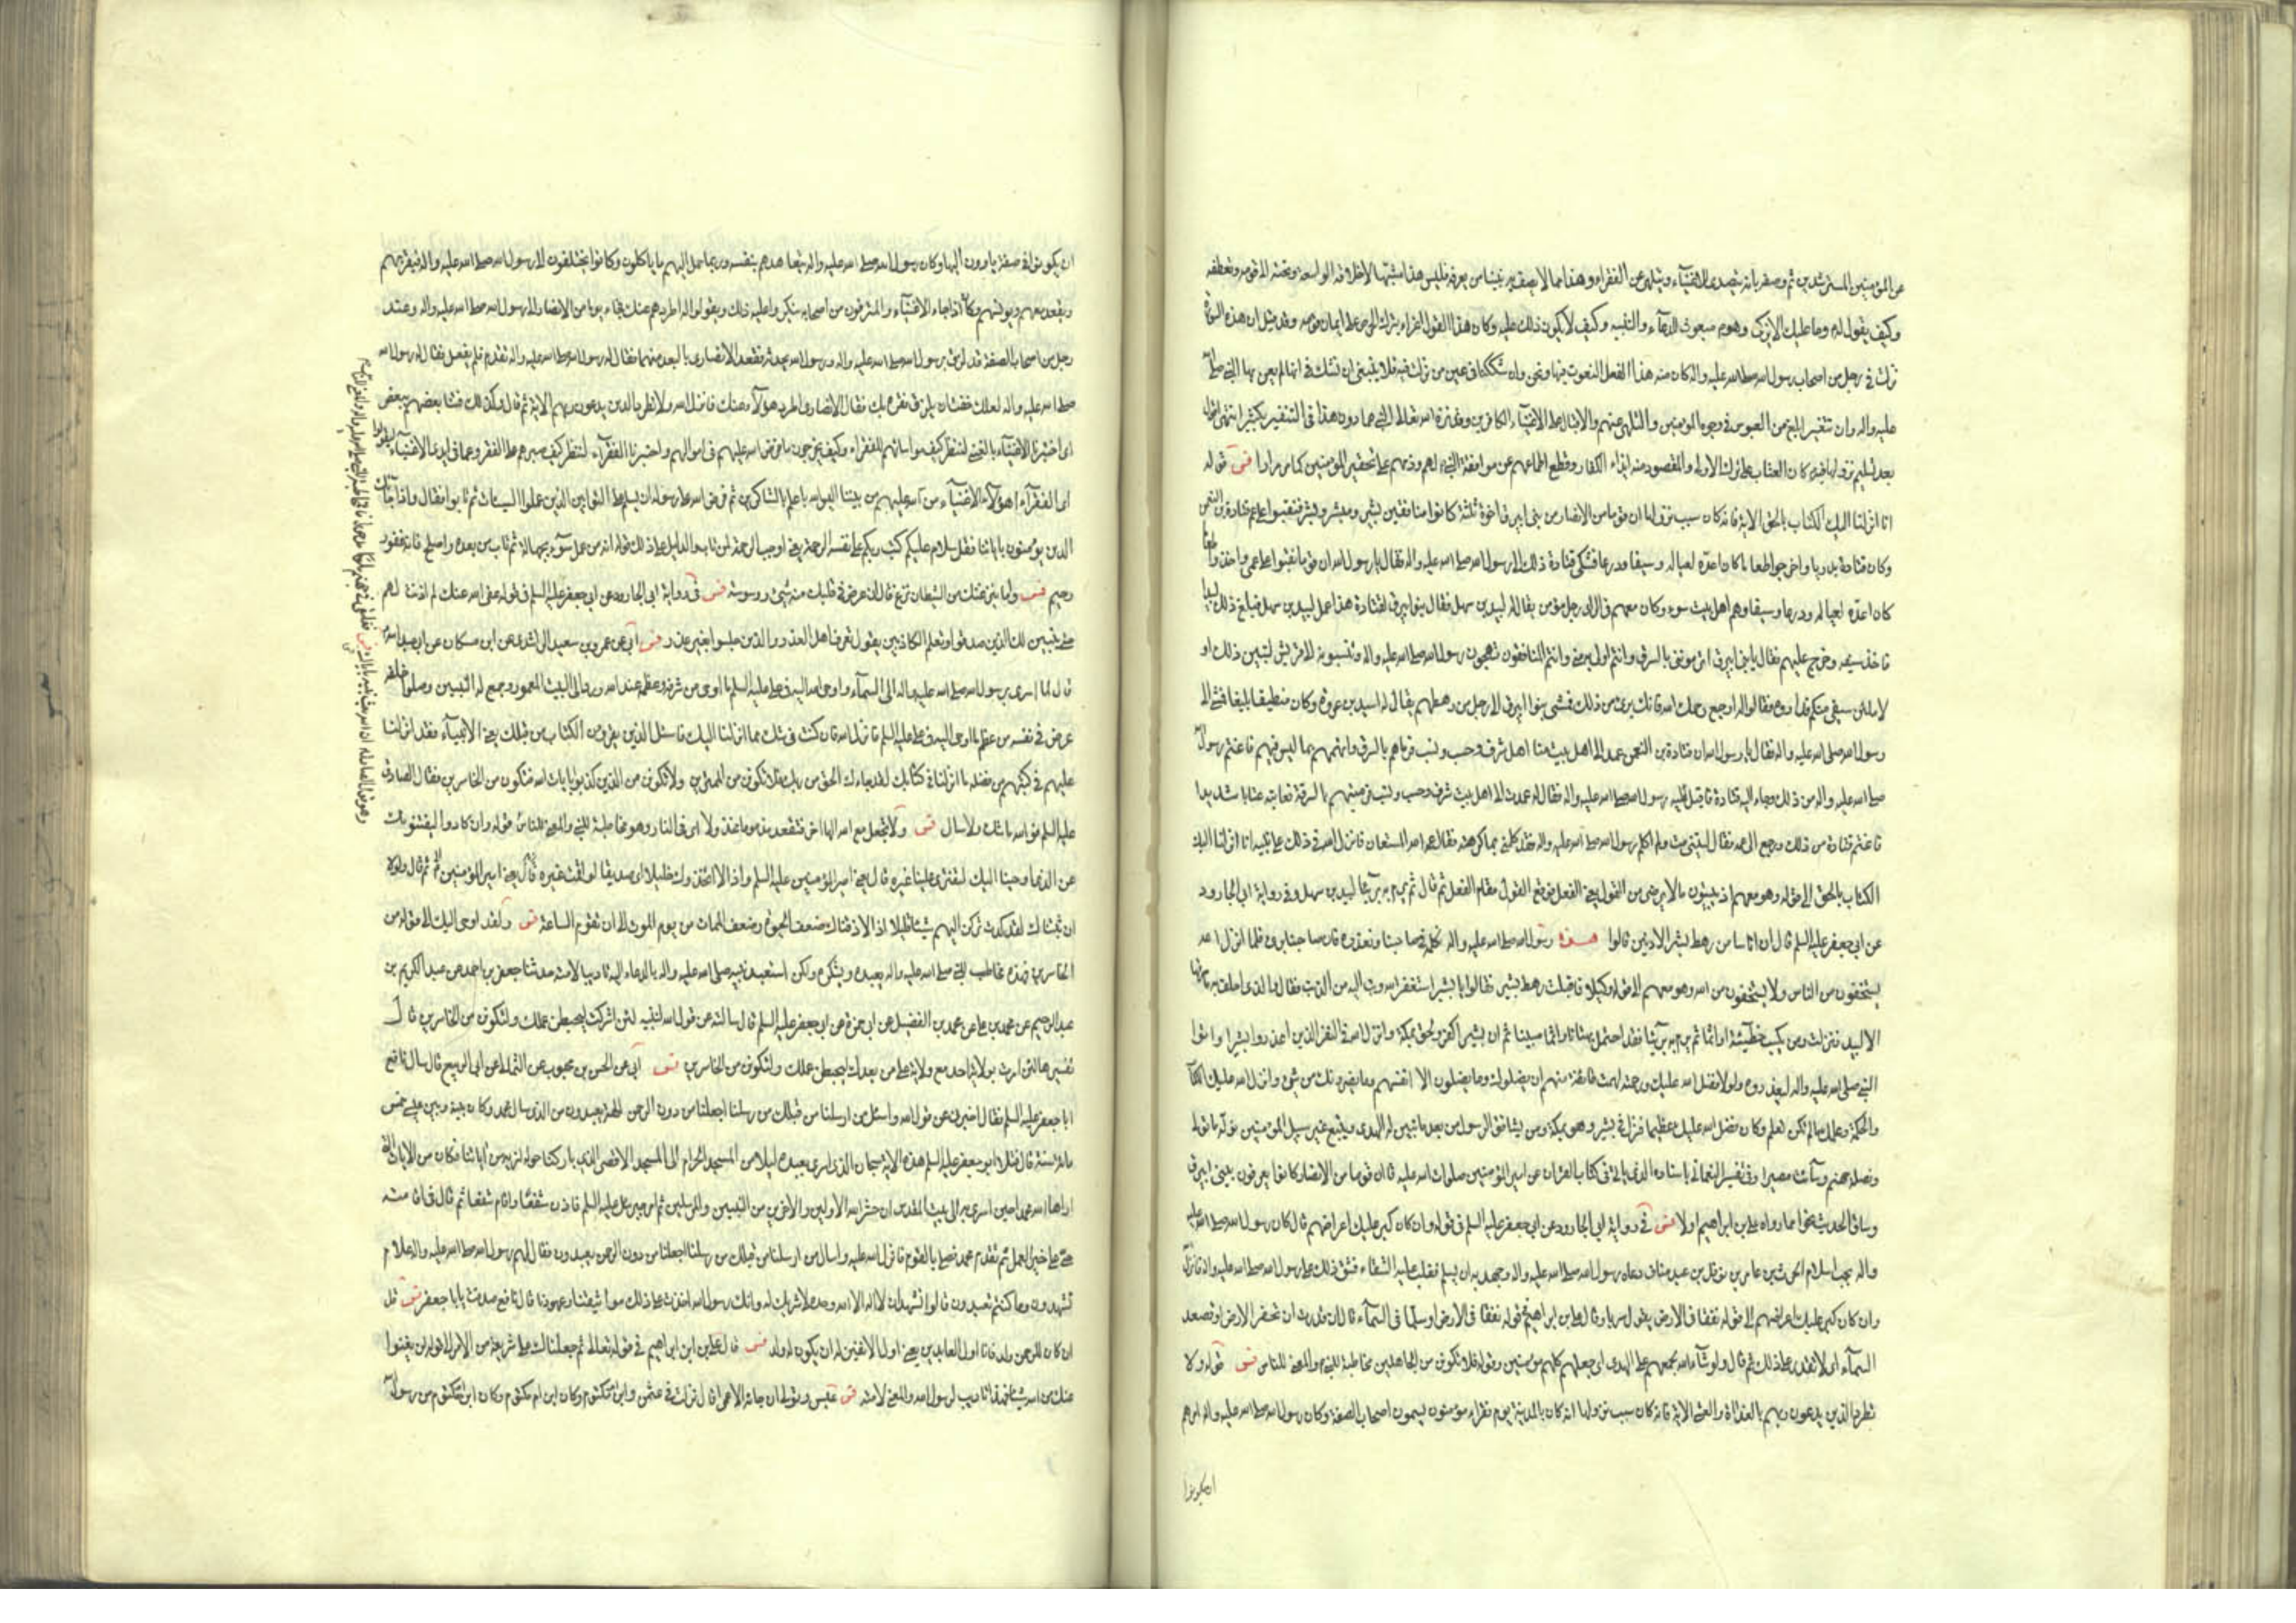 عن المؤمنين المسترشدين ثم وصفه بانه يتصدى للاغنياء ويتلهى عن الفقراء وهذا مما لا يصف به نبينا من يعرفه فليس هذا مشبها لاخلاقه الواسعة وتحننه الى قومه وتعطفه
وكيف يقول له وما عليك الا يزكى وهو مبعوث للدعاء والتنبيه وكيف لا يكون ذلك عليه وكان هذا القول اغراء بترك الحرص على ايمان قومه وقد قيل ان هذه السورة
نزلت في رجل من اصحاب رسول الله صلى الله عليه واله كان منه هذا الفعل المنعوت فيها ونحن وان شككنا في عين من نزلت فيه فلا ينبغي ان نشك في انها لم يعن بها النبي صلى الله
عليه واله واى تنفير ابلغ من العبوس في وجوه المؤمنين والتلهى عنهم والاقبال على الاغنياء الكافرين وقد نزه الله تعالى النبي عما دون هذا في التنفير بكثير انتهى اقول
بعد تسليم نزولها فيه كان العتاب على ترك الاولى والمقصود منه ايذاء الكفار وقطع اطماعهم عن موافقة النبي لهم وذمهم على تحقير المؤمنين كما مر مرارا فس قوله
انا انزلنا اليك الكتاب بالحق الاية فانه كان سبب نزولها ان قوما من الانصار من بنى ابيرق اخوة ثلثة كانوا منافقين بشير ومبشر وبشر فنقبوا على عم قتادة بن النعمن
وكان قتادة بدريا واخرجوا طعاما كان اعده لعياله وسيفا ودرعا فشكى قتادة ذلك الى رسول الله صلى الله عليه واله فقال يا رسول الله ان قوما نقبوا على عمى واخذوا طعاما
كان اعده لعياله ودرعا وسيفا وهم اهل بيت سوء وكان معهم في الراى رجل مؤمن يقال له لبيد بن سهل فقال بنو ابيرق لقتادة هذا عمل لبيد بن سهل فبلغ ذلك لبيدا
فاخذ سيفه وخرج عليهم فقال يا بنى ابيرق اترموننى بالسرق وانتم اولى به منى وانتم المنافقون تهجون رسول الله صلى الله عليه واله وتنسبونه الى قريش لتبينن ذلك او
لاملئن سيفى منكم فداروه فقالوا له ارجع رحمك الله فانك برئ من ذلك فمشى بنوا ابيرق الى رجل من رهطهم يقال له اسيد بن عروة وكان منطيقا بليغا فمشى الى
رسول الله صلى الله عليه واله فقال يا رسول الله ان قتادة بن النعمن عمد الى اهل بيت منا اهل شرف وحسب ونسب فرماهم بالسرق واتهمهم بما ليس فيهم فاغتم رسول الله
صلى الله عليه واله من ذلك وجاء اليه قتادة فاقبل عليه رسول الله صلى الله عليه واله فقال له عمدت الى اهل بيت شرف وحسب ونسب فرميتهم بالسرقة فعاتبه عتابا شديدا
فاغتم قتادة من ذلك ورجع الى عمه فقال ليتنى مت ولم اكلم رسول الله صلى الله عليه واله فقد كلمنى بما كرهته فقال عمه الله المستعان فانزل الله في ذلك على نبيه انا انزلنا اليك
الكتاب بالحق الى قوله وهو معهم اذ يبيتون ما لا يرضى من القول يعنى الفعل فوقع القول مقام الفعل ثم قال ثم يرم به بريئا لبيد بن سهل وفي رواية ابى الجارود
عن ابى جعفر عليه السلم قال ان اناسا من رهط بشير الادنين قالوا رسول الله صلى الله عليه واله نكلمه في صاحبنا ونعذره فان صاحبنا برئ فلما انزل الله
يستخفون من الناس ولا يستخفون من الله وهو معهم الى قوله وكيلا فاقبلت رهط بشير فقالوا يا بشر استغفر الله وتب اليه من الذنب فقال والذى احلف به ما سرقها
الا لبيد فنزلت ومن يكسب خطيئة او اثما ثم يرم به بريئا فقد احتمل بهتانا واثما مبينا ثم ان بشير اكفر ولحق بمكة وانزل الله في النفر الذين اعذروا بشيرا واتوا
النبي صلى الله عليه واله ليعذروه ولولا فضل الله عليك ورحمته لهمت طائفة منهم ان يضلوك وما يضلون الا انفسهم وما يضرونك من شئ وانزل الله عليك الكتاب
والحكمة وعلمك ما لم تكن تعلم وكان فضل الله عليك عظيما فنزل في بشير وهو بمكة ومن يشاقق الرسول من بعد ما تبين له الهدى ويتبع غير سبيل المؤمنين نوله ما تولى
ونصله جهنم وساءت مصيرا وفي تفسير النعمانى باسناده الذى ياتى في كتاب القران عن امير المؤمنين صلوات الله عليه قال ان قوما من الانصار كانوا يعرفون ببنى ابيرق
وساق الحديث نحوا مما رواه على بن ابراهيم اولا فس في رواية ابى الجارود عن ابى جعفر عليه السلم في قوله وان كان كبر عليك اعراضهم قال كان رسول الله صلى الله عليه
واله يحب اسلام الحرث بن عامر بن نوفل بن عبد مناف دعاه رسول الله صلى الله عليه واله وجهد به ان يسلم فغلب عليه الشقاء فشق ذلك على رسول الله صلى الله عليه واله فانزل الله
وان كان كبر عليك اعراضهم الى قوله نفقا في الارض يقول سربا وقال على بن ابراهيم في قوله نفقا في الارض او سلما في السماء قال ان قدرت ان تحفر الارض او تصعد
السماء اى لا تقدر على ذلك ثم قال ولو شاء الله لجمعهم على الهدى اى جعلهم كلهم مؤمنين وقوله فلا تكونن من الجاهلين مخاطبة للنبي والمعنى للناس فس قوله ولا
تطرد الذين يدعون ربهم بالغداة والعشى الاية فانه كان سبب نزولها انه كان بالمدينة قوم فقراء مؤمنون يسمون اصحاب الصفة وكان رسول الله صلى الله عليه واله امرهم
ان يكونوا
ان يكونوا في صفة ياوون اليها وكان رسول الله صلى الله عليه واله يتعاهدهم بنفسه وربما حمل اليهم ما ياكلون وكانوا يختلفون الى رسول الله صلى الله عليه واله فيقربهم
ويقعد معهم ويونسهم وكان اذا جاء الاغنياء والمترفون من اصحابه ينكروا عليه ذلك ويقولوا له اطردهم عنك فجاء يوما من الانصار الى رسول الله صلى الله عليه واله وعنده
رجل من اصحاب الصفة قد لزق برسول الله صلى الله عليه واله ورسول الله يحدثه فقعد الانصارى بالبعد منهما فقال له رسول الله صلى الله عليه واله تقدم فلم يفعل فقال له رسول الله
صلى الله عليه واله لعلك خفت ان يلزق فقره بك فقال الانصارى اطرد هؤلاء عنك فانزل الله ولا تطرد الذين يدعون ربهم الاية ثم قال وكذلك فتنا بعضهم ببعض
اى اختبرنا الاغنياء بالغنى لننظر كيف مواساتهم للفقراء وكيف يخرجون ما فرض الله عليهم في اموالهم واختبرنا الفقراء لننظر كيف صبرهم على الفقر وعما في ايدى الاغنياء ليقولوا
اى الفقراء اهؤلاء الاغنياء من الله عليهم من بيننا اليس الله باعلم بالشاكرين ثم فرض الله على رسوله ان يسلم على التوابين الذين عملوا السيئات ثم تابوا فقال واذا جاءك
الذين يؤمنون باياتنا فقل سلام عليكم كتب ربكم على نفسه الرحمة يعنى اوجب الرحمة لمن تاب والدليل على ذلك قوله انه من عمل سوء بجهالة ثم تاب من بعده واصلح فانه غفور
رحيم فس واما ينزغنك من الشيطان نزغ قال ان عرض في قلبك منه شئ ووسوسة فس في رواية ابى الجارود عن ابى جعفر عليه السلم في قوله عفى الله عنك لم اذنت لهم
حتى يتبين لك الذين صدقوا وتعلم الكاذبين يقول تعرف اهل العذر والذين جلسوا بغير عذر فس ابى عن عمرو بن سعيد الراشدى عن ابن مسكان عن ابى عبد الله
قال لما اسرى برسول الله صلى الله عليه واله الى السماء واوحى الله اليه في على عليه السلم ما اوحى من شرفه وعظمه عند الله ورد الى البيت المعمور وجمع له النبيين وصلوا خلفه
عرض في نفسه من عظم ما اوحى اليه في على عليه السلم فانزل الله فان كنت في شك مما انزلنا اليك فاسئل الذين يقرؤن الكتاب من قبلك يعنى الانبياء فقد انزلنا
عليهم في كتبهم من فضله ما انزلنا في كتابك لقد جاءك الحق من ربك فلا تكونن من الممترين ولا تكونن من الذين كذبوا بايات الله فتكون من الخاسرين فقال الصادق
عليه السلم فوالله ما شك ولا سال فس ولا تجعل مع الله الها اخر فتقعد مذموما مخذولا اى في النار وهو مخاطبة للنبي والمعنى للناس قوله وان كادوا ليفتنونك
عن الذى اوحينا اليك لتفترى علينا غيره قال يعنى امير المؤمنين عليه السلم واذا لاتخذوك خليلا اى صديقا لو اقمت غيره ثم قال ولولا
ان ثبتناك لقد كدت تركن اليهم شيئا قليلا اذا لاذقناك ضعف الحيوة وضعف الممات من يوم الموت الى ان تقوم الساعة فس ولقد اوحى اليك الى قوله من
الخاسرين فهذه مخاطبة للنبي صلى الله عليه واله يعبده ويشكره ولكن استعبد نبيه صلى الله عليه واله بالدعاء اليه تاديبا لامته حدثنا جعفر بن احمد عن عبد الكريم بن
عبد الرحيم عن محمد بن على عن محمد بن الفضيل عن ابى حمزة عن ابى جعفر عليه السلم قال سالته عن قول الله لنبيه لئن اشركت ليحبطن عملك ولتكونن من الخاسرين قال
تفسيرها لئن امرت بولاية احد مع ولاية على من بعدك ليحبطن عملك ولتكونن من الخاسرين فس ابى عن الحسن بن محبوب عن الثمالى عن ابى الربيع قال سال نافع
ابا جعفر عليه السلم فقال اخبرنى عن قول الله واسئل من ارسلنا من قبلك من رسلنا اجعلنا من دون الرحمن الهة يعبدون من الذى سال محمد وكان بينه وبين عيسى خمس
مائة سنة قال فتلا ابو جعفر عليه السلم هذه الاية سبحان الذى اسرى بعبده ليلا من المسجد الحرام الى المسجد الاقصى الذى باركنا حوله لنريه من اياتنا فكان من الايات التى
اراها الله محمدا حين اسرى به الى بيت المقدس ان حشر الله الاولين والاخرين من النبيين والمرسلين ثم امر جبرئيل عليه السلم فاذن شفعا واقام شفعا ثم قال في اقامته
حى على خير العمل ثم تقدم محمد فصلى بالقوم فانزل الله عليه واسال من ارسلنا من قبلك من رسلنا اجعلنا من دون الرحمن يعبدون فقال لهم رسول الله صلى الله عليه واله على م
تشهدون وما كنتم تعبدون قالوا نشهد ان لا اله الا الله وحده لا شريك له وانك رسول الله اخذت على ذلك مواثيقنا وعهودنا قال نافع صدقت يا ابا جعفر فس قل
ان كان للرحمن ولد فانا اول العابدين يعنى اول الانفين له ان يكون له ولد فس قال على بن ابراهيم في قوله تعالى ثم جعلناك على شريعة من الامر الى قوله لن يغنوا
عنك من الله شيئا فهذا تاديب لرسول الله والمعنى لامته فس عبس وتولى ان جاءه الاعمى قال نزلت في عثمن وابن ام مكتوم وكان ابن ام مكتوم من رسول الله